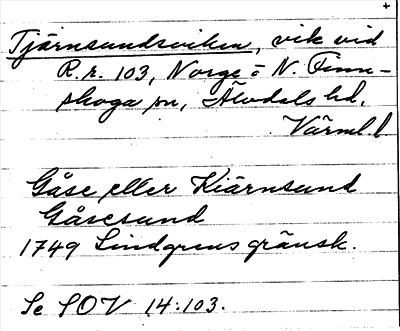 +
Tjärnsundsviken, vik vid
R.r. 103, Norge o N. Finn-
skoga sn, Älvdals hd,
Värml. l.
Gåse eller Kiärnsund
Gåsesund
1749 Lindgrens gränsk.
Se SOV 14:103.